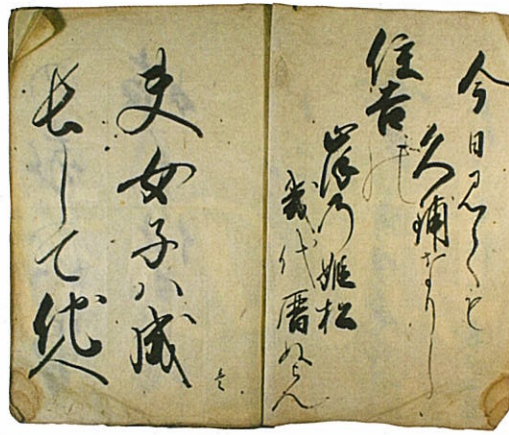 今日見ても
久鋪なりし
住吉能
岸乃姫松
幾代暦ぬらん
夫女子ハ成
長して他人